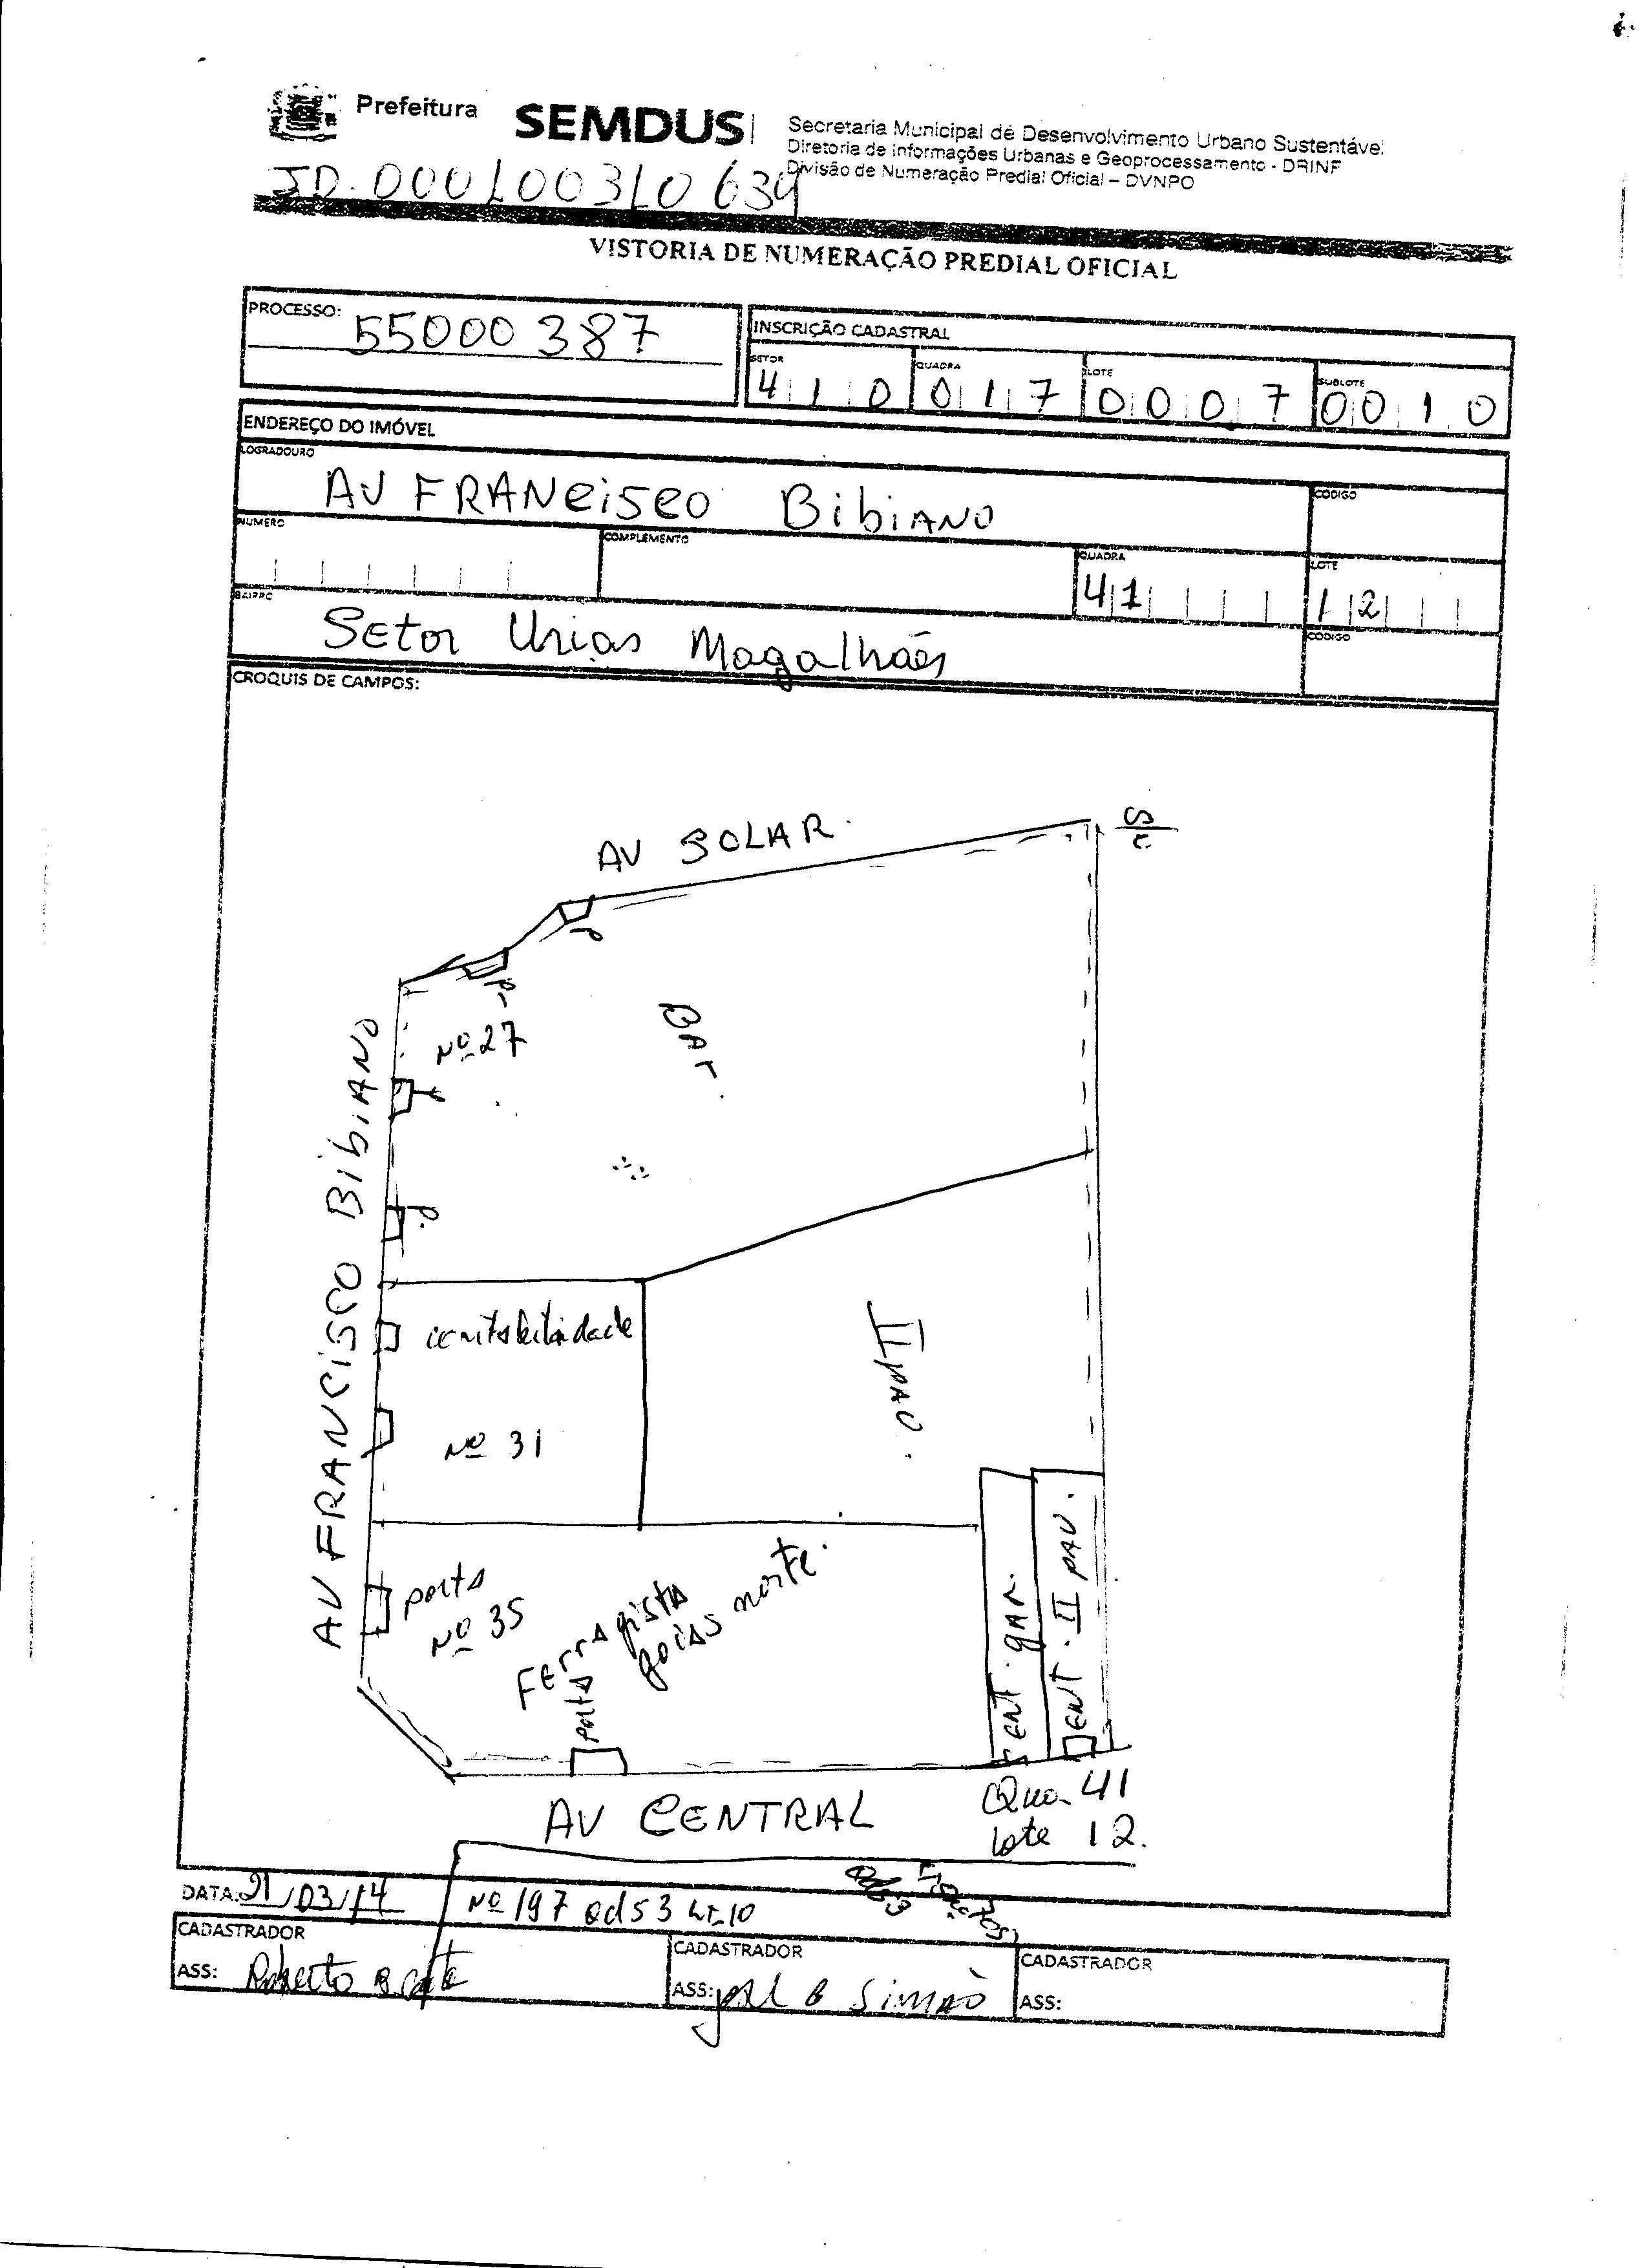 Prefeitura
SEMDUS
Secretaria Municipal de Desenvolvimento Urbano Sustentável
Diretoria de Informações Urbanas e Geoprocessamento - DRINF
Divisão de Numeração Predial Oficial – DVNPO
VISTORIA DE NUMERAÇÃO PREDIAL OFICIAL
PROCESSO: 55000387
INSCRIÇÃO CADASTRAL
SETOR QUADRA LOTE SUBLOTE
410 017 0007 0010
ENDEREÇO DO IMÓVEL
LOGRADOURO
AV FRANCISCO BibiANO
CÓDIGO
NUMERO
COMPLEMENTO
QUADRA
41
LOTE
12
BAIRRO
Setor Urias Magalhães
CODIGO
CROQUIS DE CAMPOS:
AV SOLAR.
p
p.
Nº 27
BAr.
p
p.
AV FRANCISCO BibiANO
contabilidade
Nº 31
II
porta
Nº 35
Ferragista
goias norte.
porta
ENT. gAR.
ENT. II PAV.
AV CENTRAL
Qua. 41
Lote 12.
DATA: 21/03/14
Nº 197 Qd 53 Lt 10
CADASTRADOR
ASS: Roberto
CADASTRADOR
ASS: Simão
CADASTRADOR
ASS: